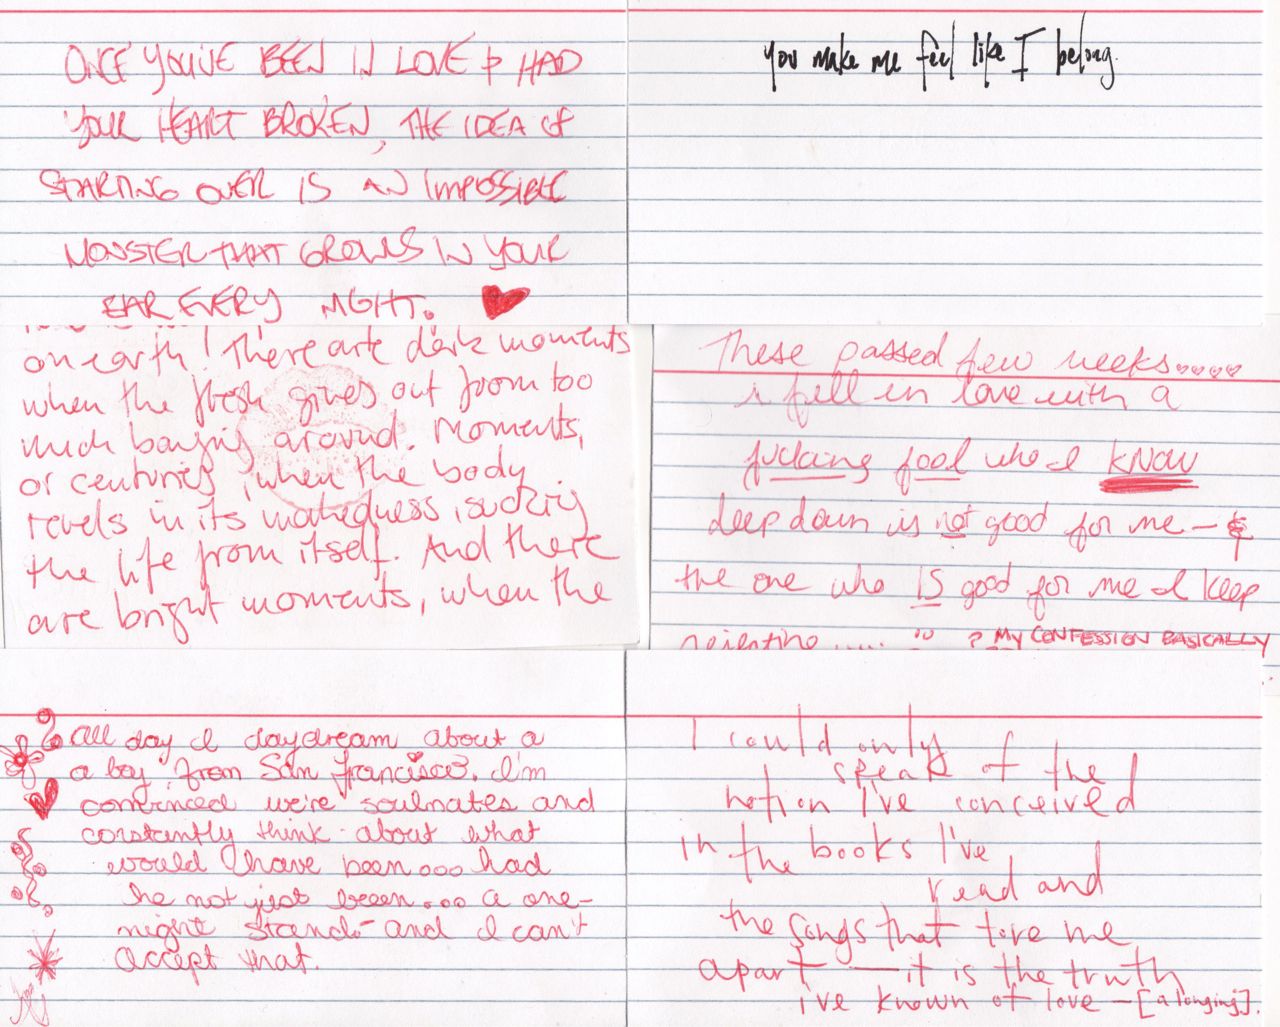 ONCE YOU'VE BEEN IN LOVE & HAD
YOUR HEART BROKEN, THE IDEA OF
STARTING OVER IS AN IMPOSSIBLE
MONSTER THAT GROWS IN YOUR
EAR EVERY NIGHT.
you make me feel like I belong.
on earth! There are dark moments
when the flesh gives out from too
much banging around. Moments,
or centuries, when the body
revels in its wakedness, sucking
the life from itself. And there
are bright moments, when the
These passed few weeks....
i fell in love with a
fucking fool who I KNOW
deep down is not good for me - &
the one who IS good for me I keep
rejecting.....
? MY CONFESSION BASICALLY
All day I daydream about a
a boy from San Francisco. I'm
convinced we're soulmates and
constantly think about what
would have been... had
he not just been... a one-
night stand - and I can't
accept that.
I could only
speak of the
notion I've conceived
in the books I've
read and
the songs that tore me
apart — it is the truth
i've known of love - [a longing].